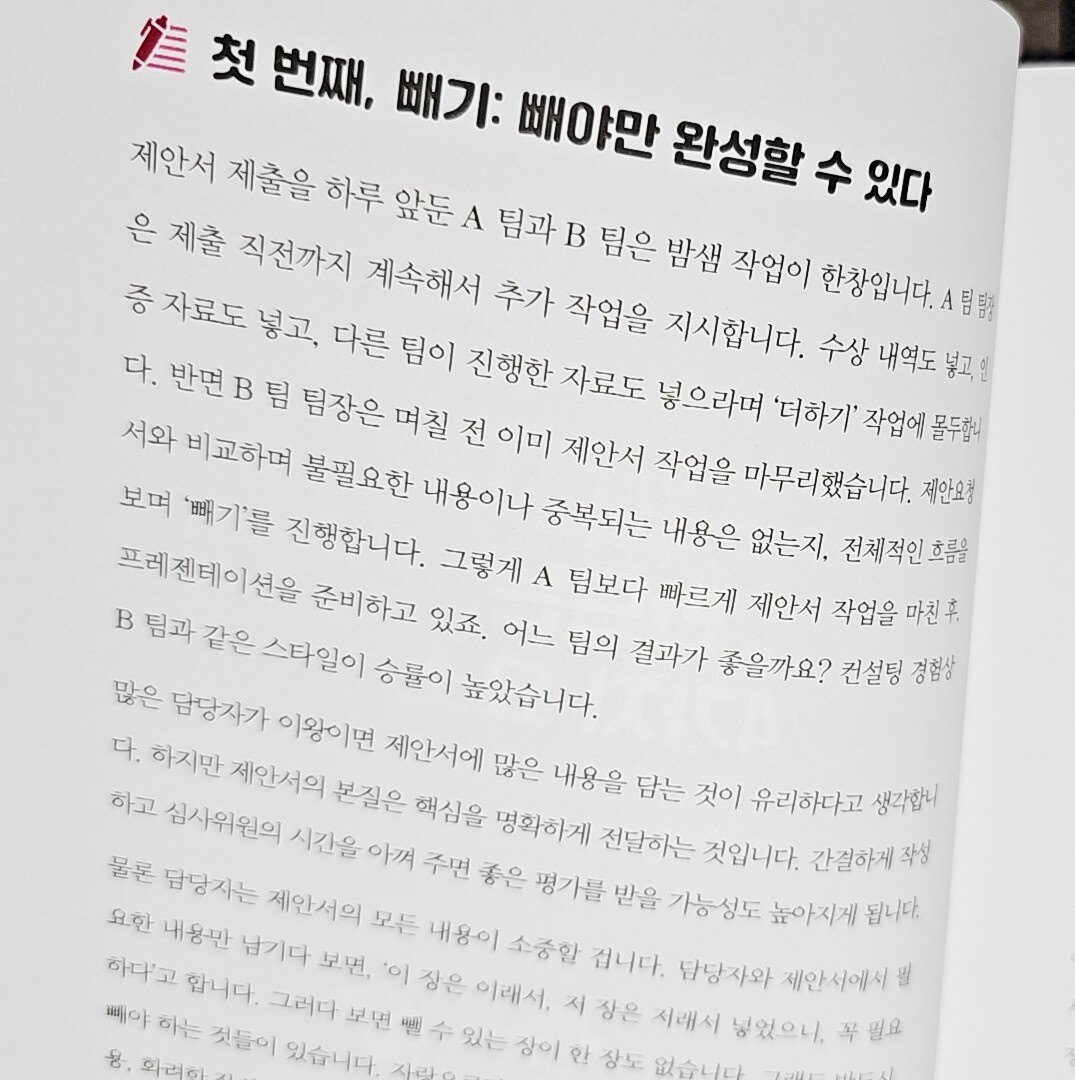 첫 번째, 빼기: 빼야만 완성할 수 있다
제안서 제출을 하루 앞둔 A 팀과 B 팀은 밤샘 작업이 한창입니다. A 팀 팀장
은 제출 직전까지 계속해서 추가 작업을 지시합니다. 수상 내역도 넣고, 인
증 자료도 넣고, 다른 팀이 진행한 자료도 넣으라며 ‘더하기’ 작업에 몰두합니
다. 반면 B 팀 팀장은 며칠 전 이미 제안서 작업을 마무리했습니다. 제안요청
서와 비교하며 불필요한 내용이나 중복되는 내용은 없는지, 전체적인 흐름을
보며 ‘빼기’를 진행합니다. 그렇게 A 팀보다 빠르게 제안서 작업을 마친 후,
프레젠테이션을 준비하고 있죠. 어느 팀의 결과가 좋을까요? 컨설팅 경험상
B 팀과 같은 스타일이 승률이 높았습니다.
많은 담당자가 이왕이면 제안서에 많은 내용을 담는 것이 유리하다고 생각합니
다. 하지만 제안서의 본질은 핵심을 명확하게 전달하는 것입니다. 간결하게 작성
하고 심사위원의 시간을 아껴 주면 좋은 평가를 받을 가능성도 높아지게 됩니다.
물론 담당자는 제안서의 모든 내용이 소중할 겁니다. 담당자와 제안서에서 필
요한 내용만 남기다 보면, ‘이 장은 이래서, 저 장은 저래서 넣었으니, 꼭 필요
하다’고 합니다. 그러다 보면 뺄 수 있는 장이 한 장도 없습니다. 그래도 반드시
빼야 하는 것들이 있습니다.
용, 화려한